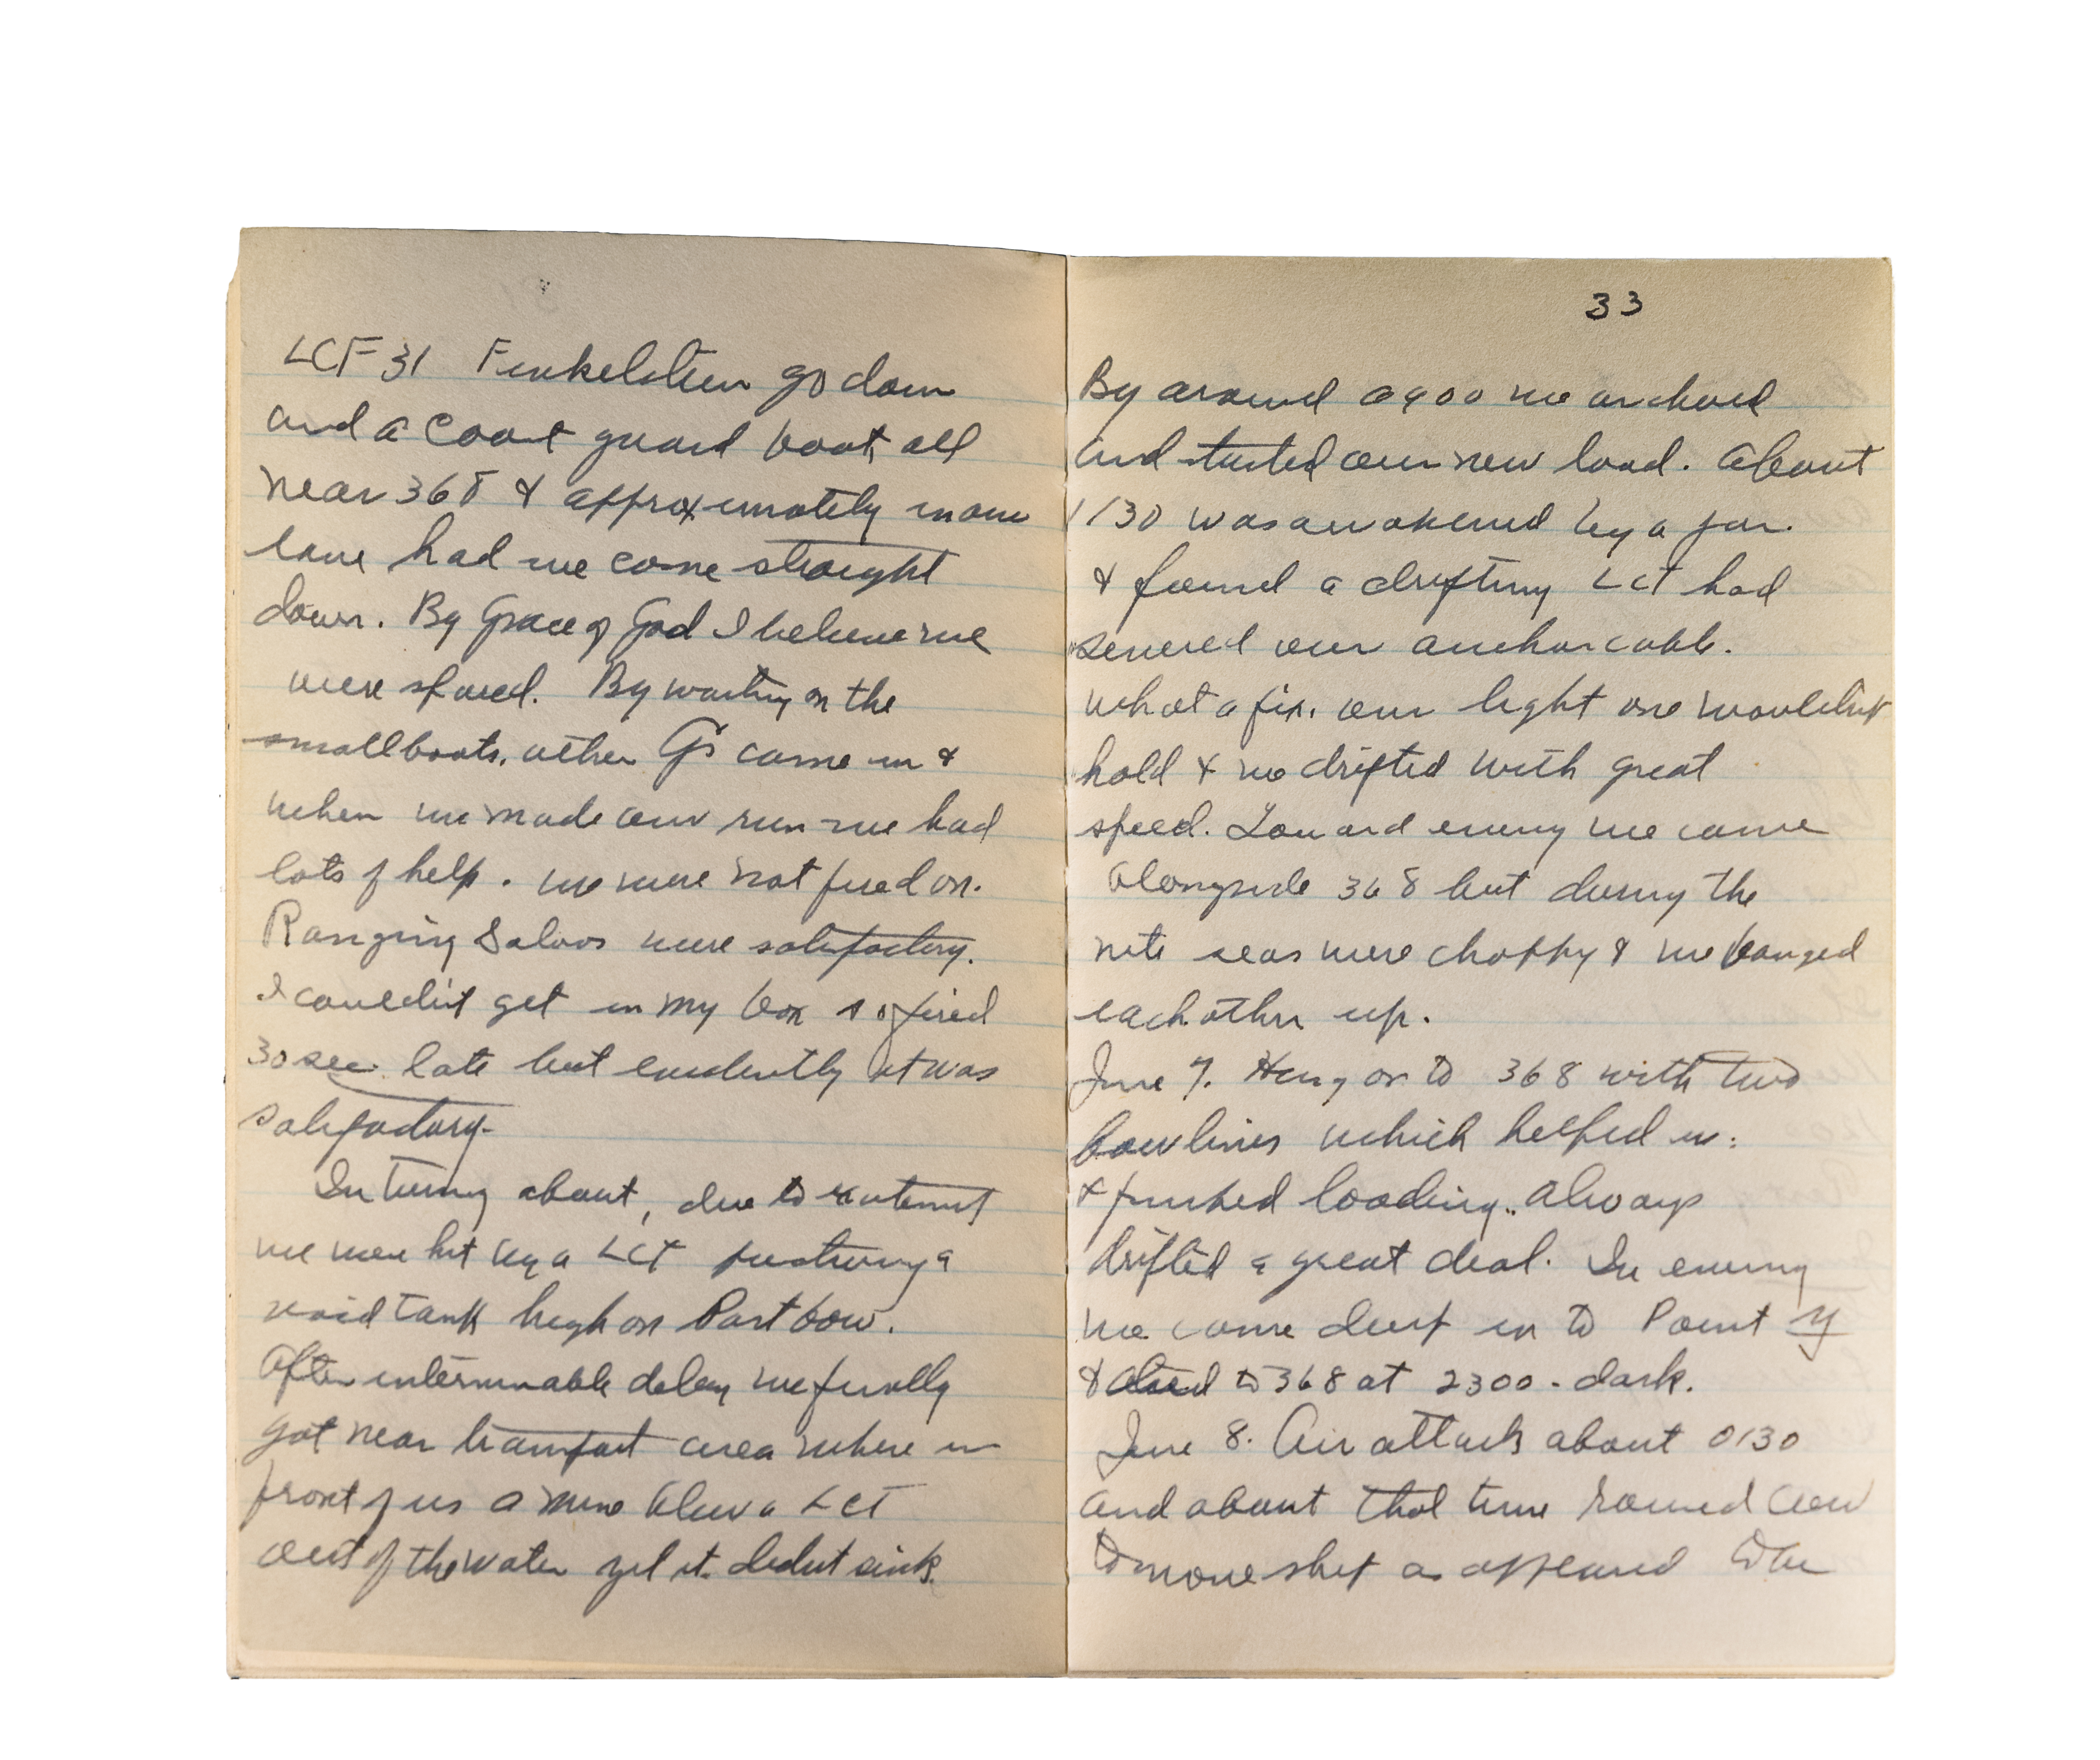 LCF 31 Finkelstein go down
and a Coast guard boat, all
near 368 & approximately in our
lane had we come straight
down. By Grace of God I believe we
were spared. By waiting on the
small boats, other G's came in &
when we made our run we had
lots of help. we were not fired on.
Ranging Salvos were satisfactory.
I couldn't get in my box so fired
30 sec. late but evidently it was
satisfactory.
In turning about, due to
we were hit by a LCT puncturing a
void tank high on Port bow.
After interminable delay we finally
got near transport area where in
front of us a mine blew a LCT
out of the water yet it didnt sink.
33
By around 0900 we anchored
and started our new load. About
1130 was awakened by a jar.
& found a drifting LCT had
severed our anchor cable.
What a fix. our light one wouldn't
hold & we drifted with great
speed. Toward evening we came
alongside 368 but during the
nite seas were choppy & we banged
each other up.
June 7. Hung on to 368 with two
bow lines which helped us.
& finished loading. Always
drifted a great deal. In evening
we came in to Point Y
& to 368 at 2300 - dark.
June 8. Air attack about 0130
and about that time roused crew
to move ship as appeared to be